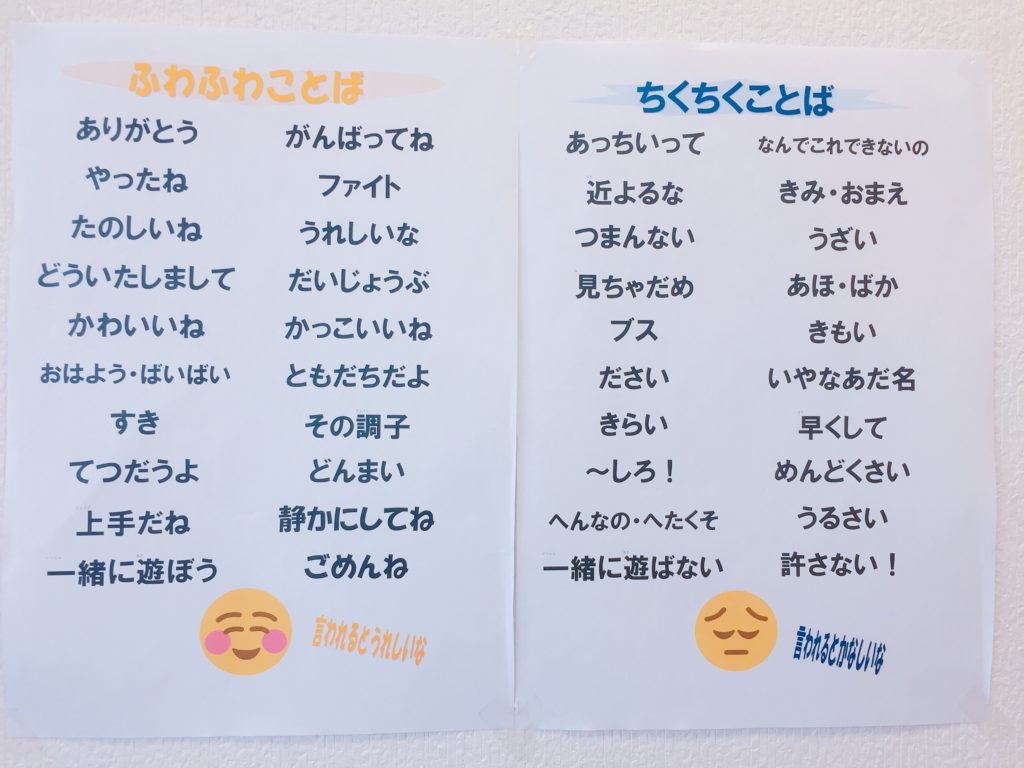 ふわふわことば
ありがとう
やったね
たのしいね
どういたしまして
かわいいね
おはよう・ばいばい
すき
てつだうよ
上手だね
一緒に遊ぼう
がんばってね
ファイト
うれしいな
だいじょうぶ
かっこいいね
ともだちだよ
その調子
どんまい
静かにしてね
ごめんね
言われるとうれしいな
ちくちくことば
あっちいって
近よるな
つまんない
見ちゃだめ
ブス
ださい
きらい
～しろ！
へんなの・へたくそ
一緒に遊ばない
なんでこれできないの
きみ・おまえ
うざい
あほ・ばか
きもい
いやなあだ名
早くして
めんどくさい
うるさい
許さない！
言われるとかなしいな